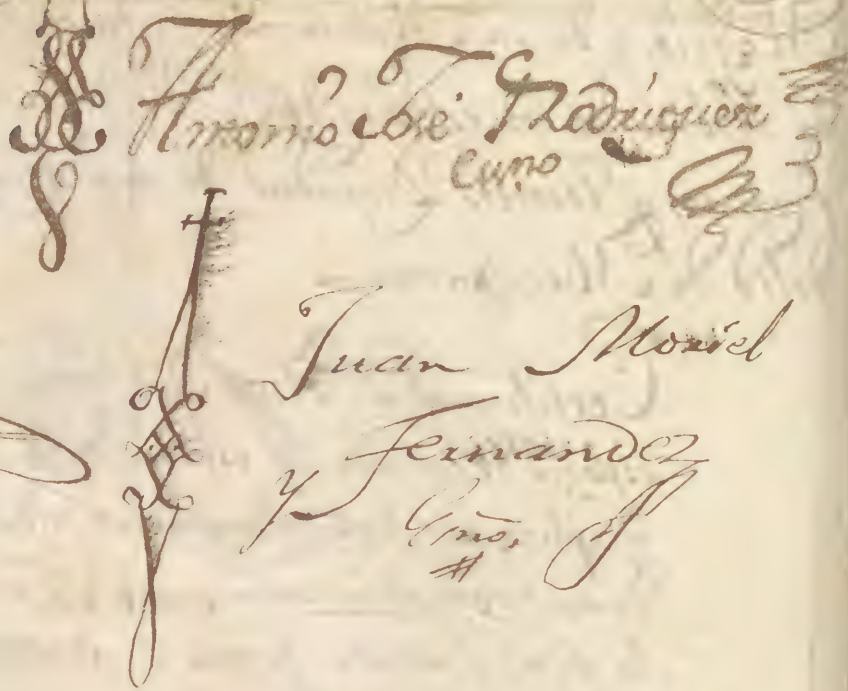 Antonio José Rodriguez
Esno
Juan Moriel
y Fernandez
Esño.